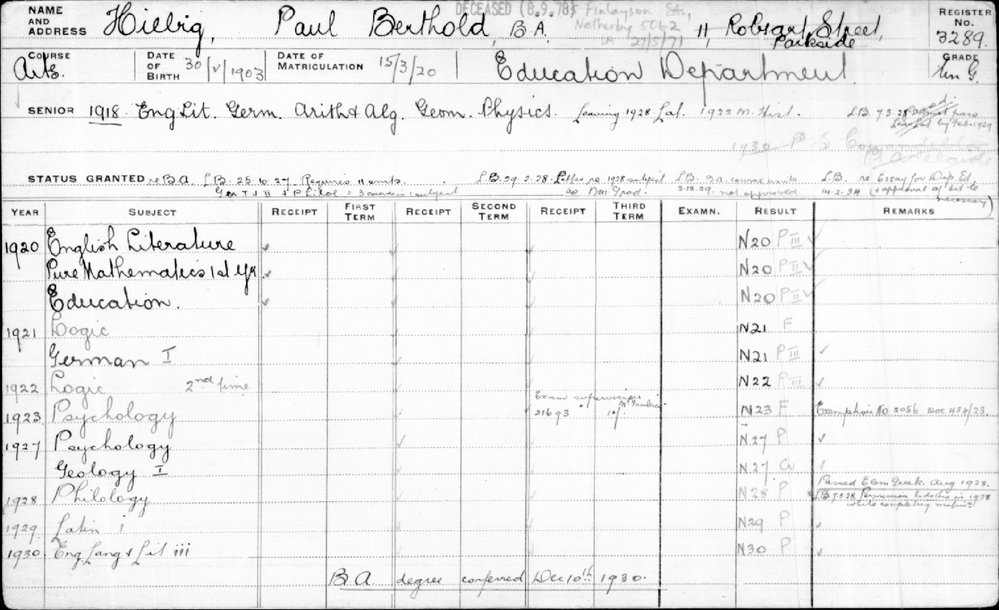 DECEASED (8.9.78) Finlayson St.,
Netherby 5062
27/5/71
NAME AND ADDRESS Hiebig, Paul Berthold, B.A. 11, Robsart Street, Parkside
REGISTER NO. 3289.
COURSE Arts. DATE OF BIRTH 30/V/1903 DATE OF MATRICULATION 15/3/20 Education Department GRADE
SENIOR 1918 Eng Lit. Germ. Arith & Alg. Geom. Physics. Leaving 1928 Lat. 1922 M. Hist. LB 7.3.28
1930 P S
Adelaide
STATUS GRANTED re B.A. LB. 25.10.27. Requires 11 units. LB. 29.2.28. Letter re 1928 subject LB. B.a. course LB. re Essay for Dip. Ed.
as Non Grad. 2.12.29. not approved 14.2.34 (& approval of
YEAR SUBJECT RECEIPT FIRST TERM RECEIPT SECOND TERM RECEIPT THIRD TERM EXAMN. RESULT REMARKS
1920 English Literature N20 P III
Pure Mathematics 1st Yr N20 P II
Education. N20 P II
1921 Logic N21 F
German I N21 P III
1922 Logic 2nd time N22 P III
Exam supervision
1923 Psychology 21693 10/- N23 F Exemption No 2056 Doc 428/23.
1927 Psychology N27 P
Geology I N27 Cr
Passed Elem Greek. Aug 1928.
1928 Philology N28 P LB 7.3.28 Permission to in 1928
while completing matric
1929 Latin i N29 P
1930 Eng Lang & Lit iii N30 P
B.A degree conferred Dec 10th 1930.